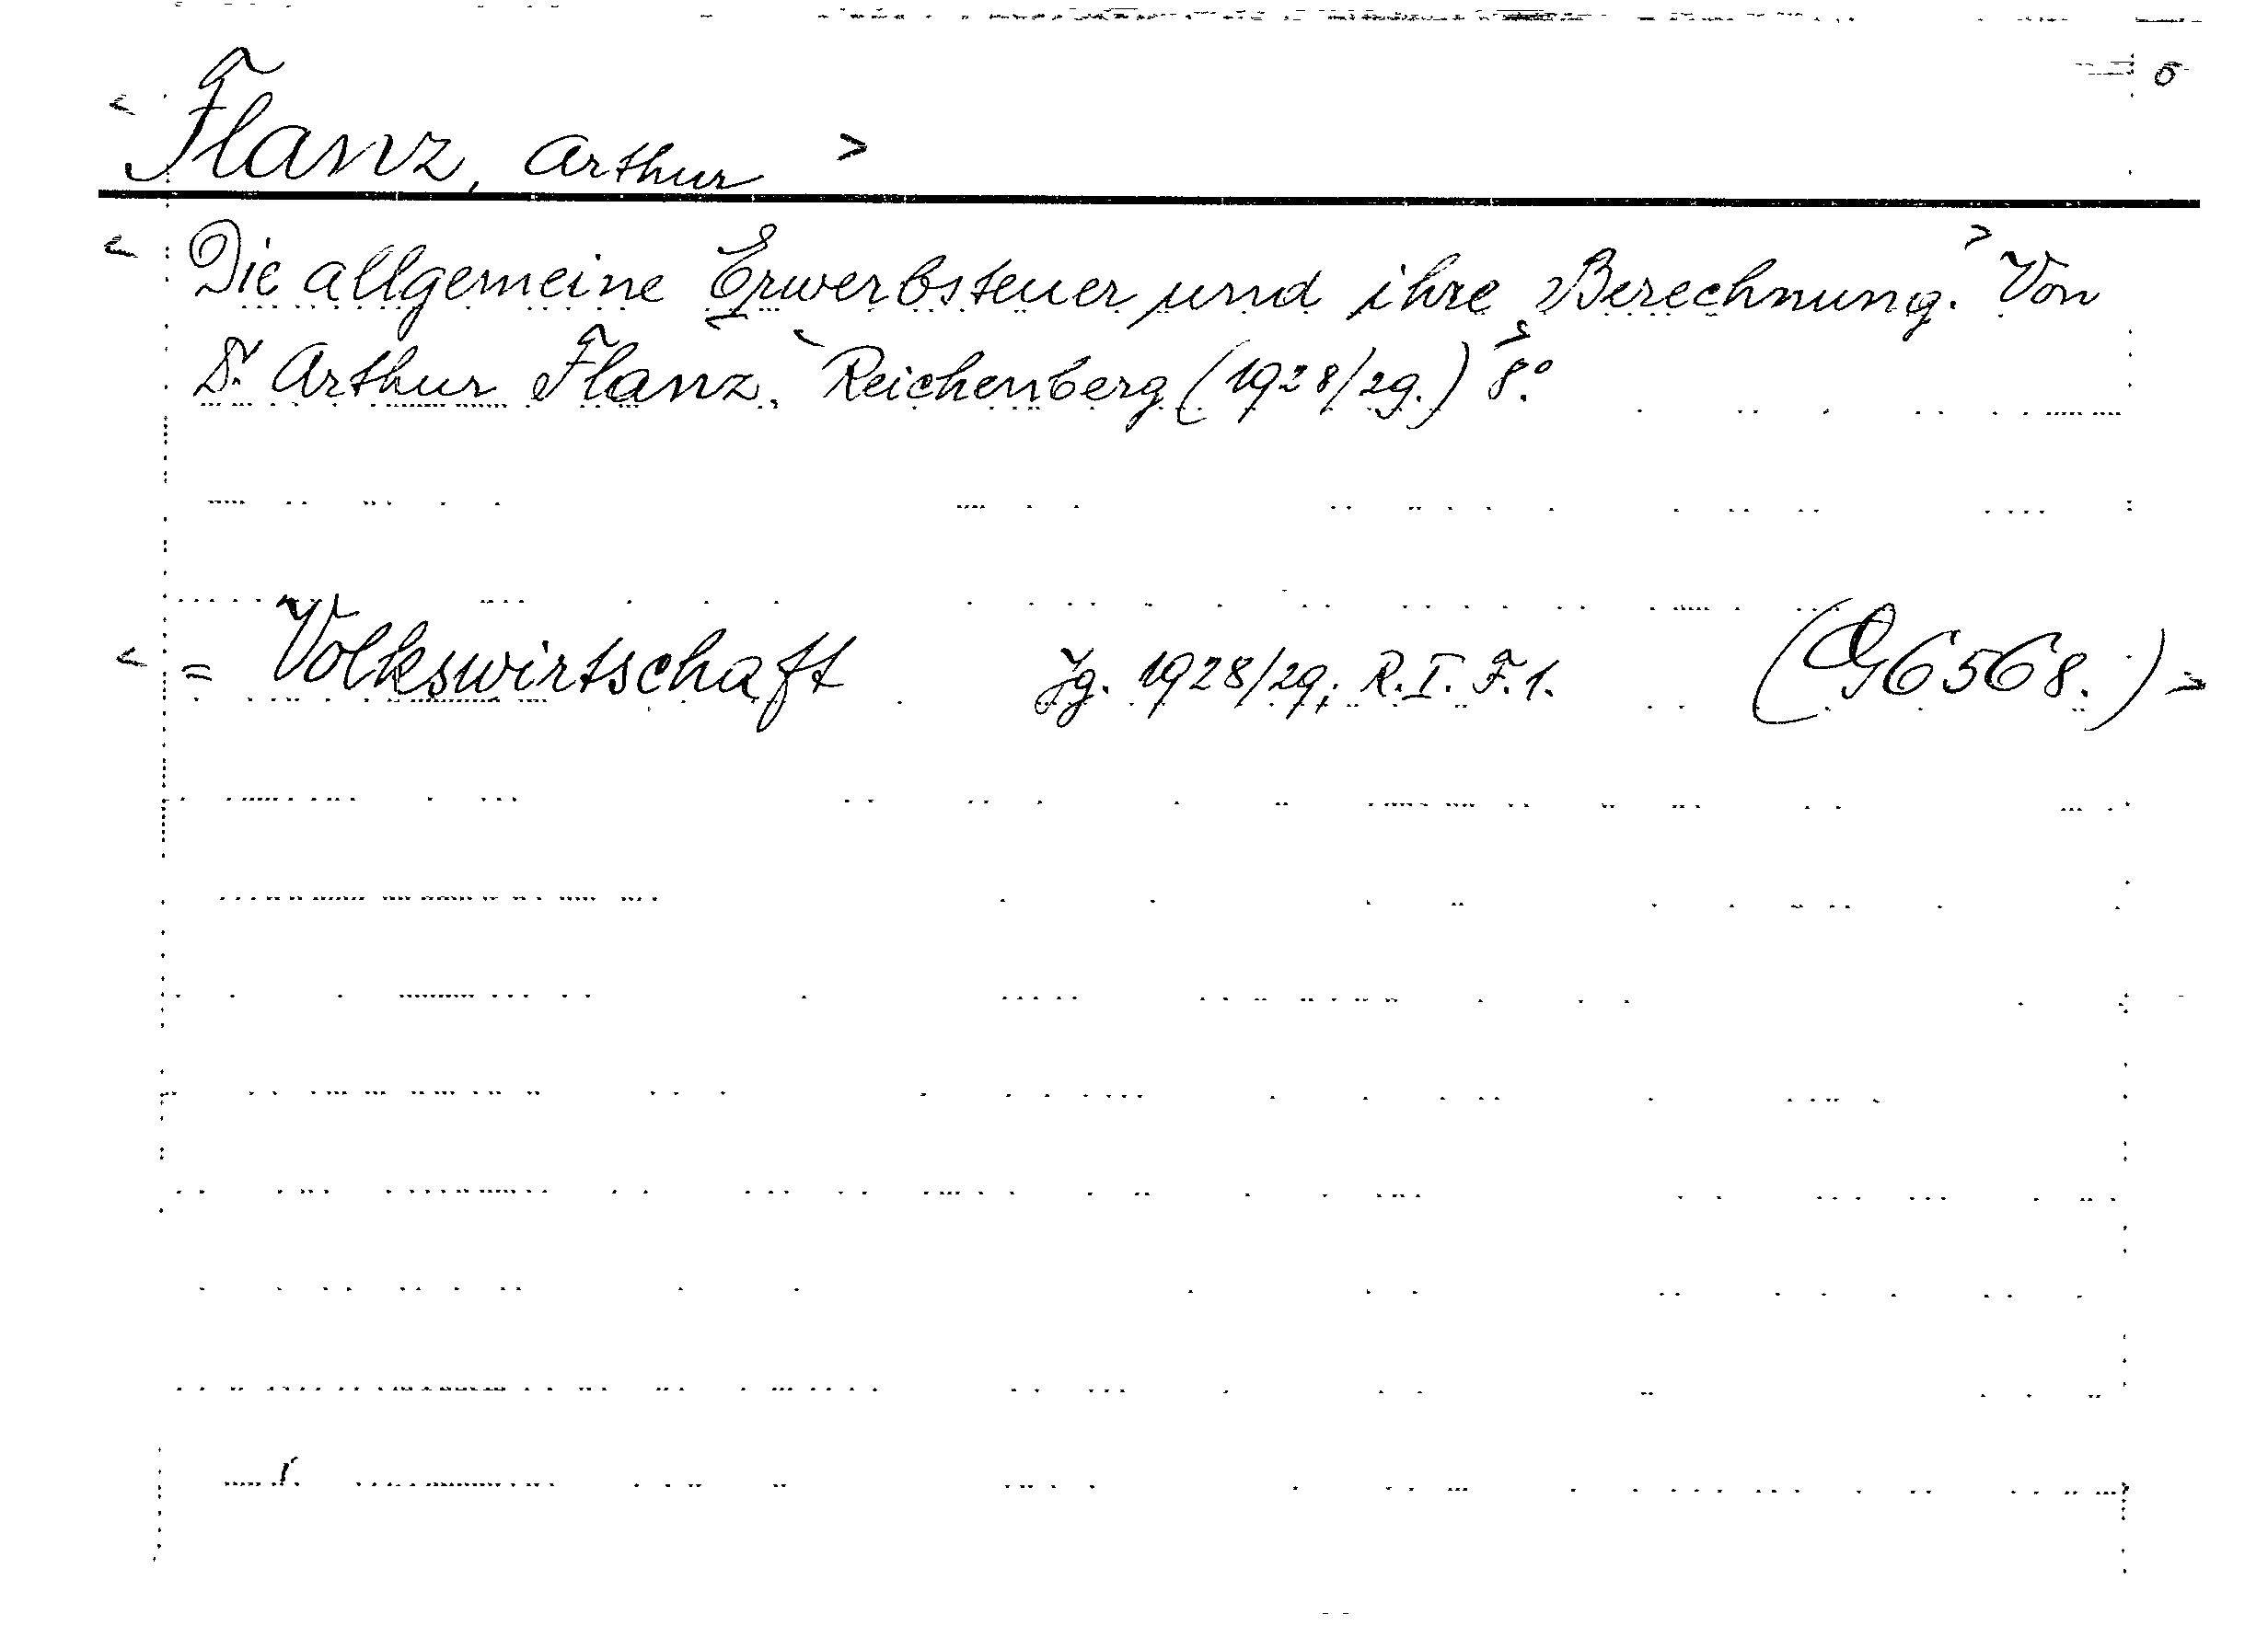 < Flanz, Arthur >
< Die allgemeine Erwerbsteuer und ihre Berechnung. > Von
Dr. Arthur Flanz. Reichenberg (1928/29.) 8.°
< = Volkswirtschaft Jg. 1928/29; R.I. F.1. (G 6568.) >